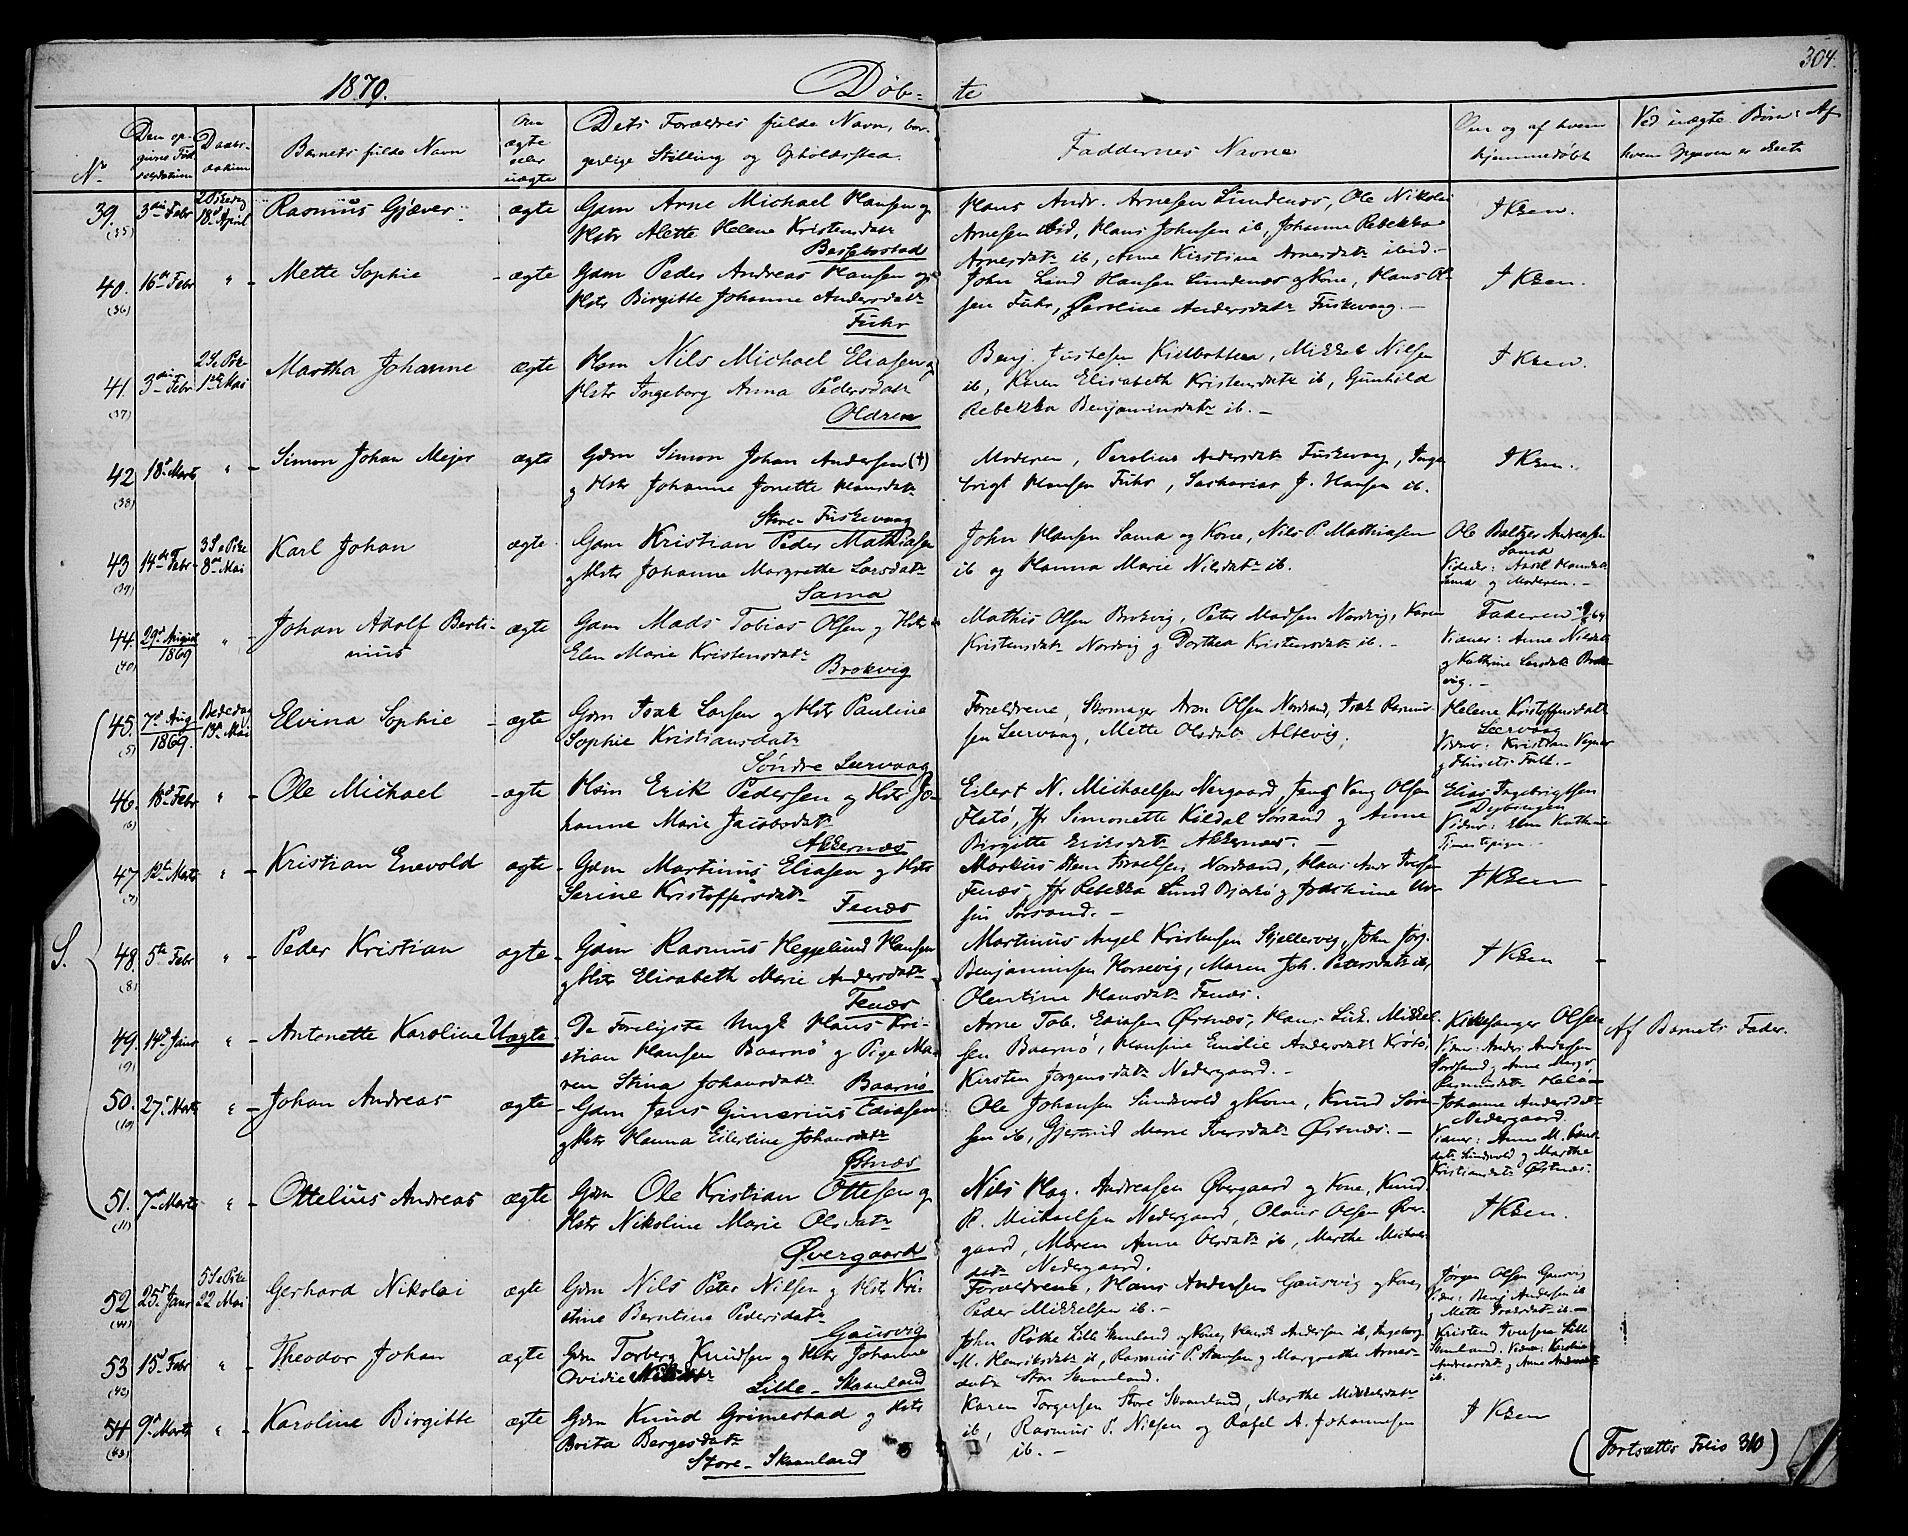 304.
1870. Døb- te
No
Den op-
givne Fød-
selsdatum
Daabs-
datum
Barnets fulde Navn
Om
ægte
eller
uægte
Dets Forældres fulde Navn, bor-
gerlige Stilling og Opholdssted.
Faddernes Navne
Om og af hvem
hjemmedøbt
Ved uægte Børn: Af
hvem Opgaven er skeet
39. (35) 3die Febr 2 Paaskedag 18d April Rasmus Gjæver. ægte
Gdm Arne Michael Hansen og
Hstr Alette Helene Kristensdatr
Bessebostad
Hans Andr. Arnesen Lundenes, Ole Nikolai
Arnesen ibid, Hans Johnsen ib, Johanne Rebekka
Arnesdatr ib, Anne Kirstine Arnesdatr ibid.
I Ksen.
40. (36) 16de Febr " - Mette Sophie - ægte
Gdm Peder Andreas Hansen og
Hstr Birgitte Johanne Andersdatr
Fuhr
John Lind Hansen Lundenes og Kone, Hans Ol-
sen Fuhr, Peroline Andersdatr Fuskevaag. -
I Ksen.
41. (37) 3die Febr 2 S e Pske 1ste Mai Martha Johanne ægte
Hsm Nils Michael Eliasen og
Hstr Ingeborg Anna Pedersdatr
Oldren
Benj. Justesen Kielbotten, Mikkel Nilsen
ib, Karen Elisabeth Kristensdatr ib, Gunhild
Rebekka Benjaminsdatr ib. -
I Ksen.
42 (38) 18d Marts " - Simon Johan Mejer ægte
Gdm Simon Johan Andersen (+)
og Hstr Johanne Jonette Hansdatr
Store-Fuskevaag
Moderen, Peroline Andersdatr Fuskevaag, Inge-
brigt Hansen Fuhr, Sacharias J. Hansen ib.
I Ksen.
43 (39) 14de Febr 3 S e Pske 8de Mai Karl Johan ægte
Gdm Kristian Peder Mathiasen
og Hstr Johanne Margrethe Larsdatr
Sama
John Hansen Sama og Kone, Nils P. Mathiasen
ib og Hanna Marie Nilsdatr ib.
Ole Baltzer Andreasen
Sama
Vidner: Hansdatr
Sama og Moderen. -
44. (40) 29d August 1869 " - Johan Adolf Berti-
nius ægte
Gdm Mads Tobias Olsen og Hstr
Elen Marie Kristensdatr
Brokvig
Mathis Olsen Brokvig, Peter Madsen Nordvig, Karen
Kristensdatr Nordvig og Dorthea Kristensdatr ib. -
Faderen
Vidner: Anne Nilsdatr
og Kathrine Larsdatr Brok-
vig. -
S.
45. (5) 7d Aug 1869. Bededag 13de Mai Elvina Sophie - ægte
Gdm Isak Larsen og Hstr Pauline
Sophie Kristiansdatr
Søndre Leervaag
Forældrene, Skomager Aron Olsen Nordsand, Isak Rasmus-
sen Leervaag, Mette Olsdatr Altevig.
Helene Kristoffersdatr
Leervaag
Vidner: Kristian
og Husets Folk. -
46. (6) 18d Febr " - Ole Michael - ægte
Hsm Erik Pedersen og Hstr Jo-
hanne Marie Jacobsdatr
Akkernæs
Eilert N. Michaelsen Nergaard, Jens Vang Olsen
Flatø, Jfr Simonette Kildal Sørsand og Anne
Birgitte Eriksdatr Akkernes. -
Elias Ingebrigtsen
Dybvigen
Vidner: Elen Kathrine
47 (7) 12te Marts " - Kristian Enevold ægte -
Gdm Martinus Eliasen og Hstr
Serine Kristoffersdatr
Fenæs
Markus Israelsen Nordsand, Hans Andr Iversen
Fenæs, Jfr Rebekka Lund Bjarkø og Joakhime
Sørsand. -
I Ksen -
48. (8) 5te Febr " - Peder Kristian ægte -
Gdm Rasmus Heggelund Hansen
og Hstr Elisabeth Marie Andersdatr
Fenæs
Martinus Angel Kristensen Skjellesvig, John Jørg.
Benjaminsen Horsevig, Maren Joh. Petersdatr ib,
Olentine Hansdatr Fenæs.
I Ksen -
49. (9) 14d Janr " - Antonette Karoline Uægte -
De Forlovede Ungk Hans Kri-
stian Hansen Baarnø og Pige Ma-
ren Stina Johansdatr Baarnø
Arne Tob. Eriksen Ørsnæs, Hans Mikkel-
sen Baarnø, Hansine Emilie Andersdatr Krøtø,
Kirsten Jørgensdatr Nedergaard. -
Kirkesanger Olsen
Vidner: Andr. Andersen
Nordsand og Anne Margr.
Rasmusdatr
Af Barnets Fader.
50. (10) 27de Marts " - Johan Andreas ægte -
Gdm Jens Gunerius Eriksen
og Hstr Hanna Eilertine Johansdatr
Østnæs
Ole Johansen Lundsvold og Kone, Knud Søren-
sen ib, Gjertrud Marie Iversdatr Ørsnæs. -
Johanne Andersdatr
Nedergaard.
Vidner: Anne M.
datr Lundsvold og Marthe
Kristiansdatr Østnæs.
51. (11) 7de Marts " - Ottelius Andreas ægte
Gdm Ole Kristian Ottesen og
Hstr Nikoline Marie Olsdatr
Øvergaard
Nils Hag. Andreasen Øvergaard og Kone, Knud
R. Michaelsen Nedergaard, Olaus Olsen Øver-
gaard, Maren Anna Olsdatr ib, Marthe Michels-
datr Nedergaard.
I Ksen.
52 (41) 25d Janr 5 S e Pske 22 Mai Gerhard Nikolai ægte
Gdm Nils Peter Nilsen og Hstr Kri-
stine Berntine Pedersdatr
Gausvig
Forældrene, Hans Andersen Gausvig og Kone,
Peder Mikkelsen ib. -
Jørgen Olsen Gausvig
Vidn: Benj Andersen ib
og Mette Isaksdatr ib. -
53 (42) 15d Febr " - Theodor Johan ægte
Gdm Torberg Knudsen og Hstr Johanne
Ovidie Nilsdatr
Lille-Skaanland
John Røkke Lille Skaanland og Kone, Henrik Andersen ib, Ingeborg
M. Henriksdatr ib, Rasmus P. Hansen og Margrethe Arnes-
datr Stor Skaanland.
Kristen Iversen Lille
Skaanland. Vidner: Karoline
Andreasdatr og Anne Andersdatr
ib.
54 (43) 9de Marts " - Karoline Birgitte ægte
Gdm Knud Grimestad og Hstr
Brita Bergesdatr
Store-Skaanland
Karen Torgersen Store Skaanland, Marthe Mikkelsdatr
ib, Rasmus P. Nielsen og Rafel A. Johannesen
ib. -
I Ksen
(Fortsættes Folio 310)